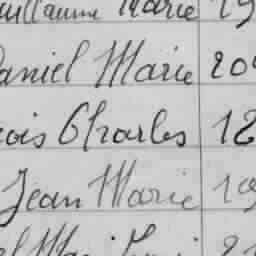 uillaume Marie 19
aniel Marie 20
ois Charles 12
Jean Marie 19